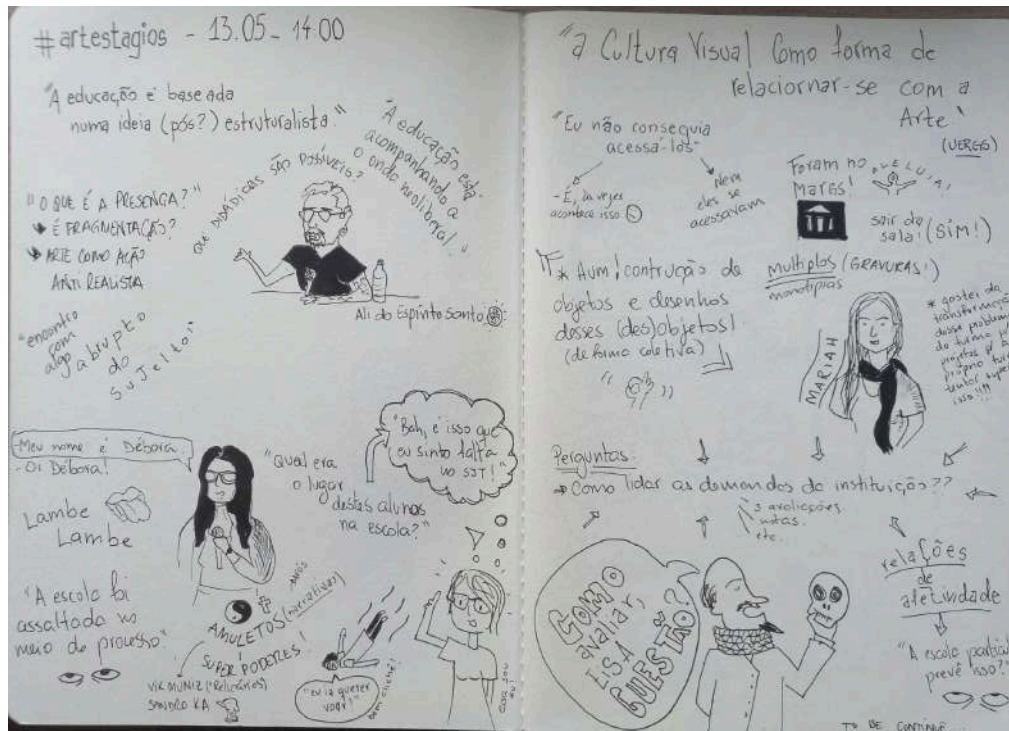 #artestagios - 13.05 - 14:00
"A educação é baseada
numa ideia (pós?) estruturalista."
"A educação está
acompanhando a
onda neoliberal!"
QUE DIDÁDICAS SÃO POSSÍVEIS?
"O QUE É A PRESENÇA?"
É FRAGMENTAÇÃO?
ARTE COMO AÇÃO
ANTI REALISTA
Ali do Espírito Santo
"encontro
com
algo abrupto
do
sujeito"
Meu nome é Débora.
- Oi Débora!
Lambe
Lambe
"Qual era
o lugar
destes alunos
na escola?"
"Bah, é isso que
eu sinto falta
no SJT!"
"A escola foi
assaltada no
meio do processo"
AMULETOS (narrativas)
SUPER PODERES!
VIK MUNIZ ("Relicários)
SANDRO KA
"eu ia querer
voar!"
bem clichê!
"a Cultura Visual como forma de
relaciornar-se com a
Arte"
(VERGS)
"Eu não conseguia
acessá-los"
- É, às vezes
acontece isso
Nem
eles se
acessavam
Foram no
MARGS!
ALELUIA!
sair da
sala! (SIM!)
* Aum! contrução de
objetos e desenhos
desses (des)objetos!
(de forma coletiva)
Multiplos (GRAVURAS!)
monotipias
MARIAH
* gostei da
transformação
desse problema
da turma p/
projetos p/ a
própria turma
tentar superar
isso!!!!
Perguntas:
Como lidar as demandas da instituição??
avaliações
notas.
etc...
COMO
avaliar,
EIS A
QUESTÃO?
relações
de
afetividade
"A escola particular
prevê isso?"
TO BE CONTINUE....